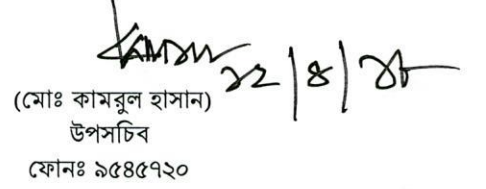 ১২/৪/১৮
(মোঃ কামরুল হাসান)
উপসচিব
ফোনঃ ৯৫৪৫৭২০